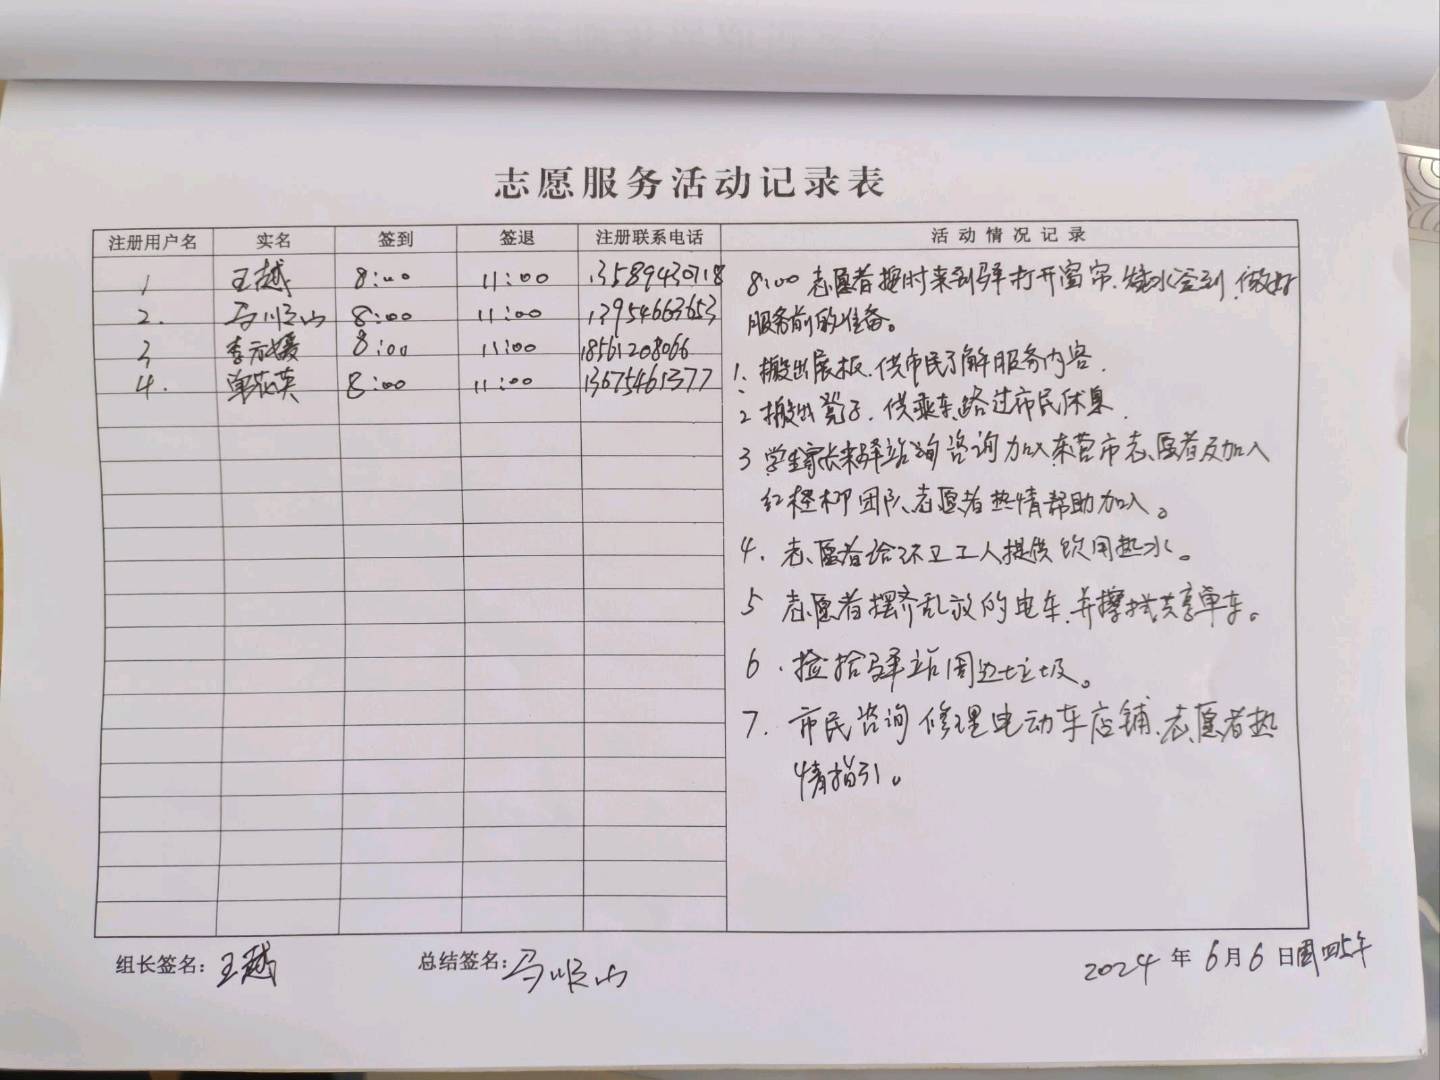 志愿服务活动记录表
注册用户名 实名 签到 签退 注册联系电话 活动情况记录
1 王越 8:00 11:00 13589430718
2. 马顺山 8:00 11:00 13954663653
3 李 媛 8:00 11:00 18561208066
4. 单花英 8:00 11:00 13675461377
8:00 志愿者按时来到驿打开窗帘、烧水签到,做好
服务前的准备。
1、搬出展板、供市民了解服务内容.
2 搬出凳子、供乘车路过市民休息.
3 学生家长来驿站 咨询加入东营市志愿者及加入
红柽柳团队,志愿者热情帮助加入。
4、志愿者给环卫工人提供饮用热水。
5 志愿者摆齐乱放的电车,并擦拭共享单车。
6、捡拾驿站周边垃圾。
7. 市民咨询修理电动车店铺、志愿者热
情指引。
组长签名:王越 总结签名:马顺山 2024年6月6日周四上午